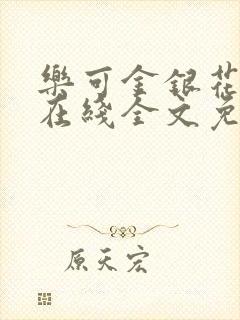 樂可金銀花
在綫全文免
原天宏